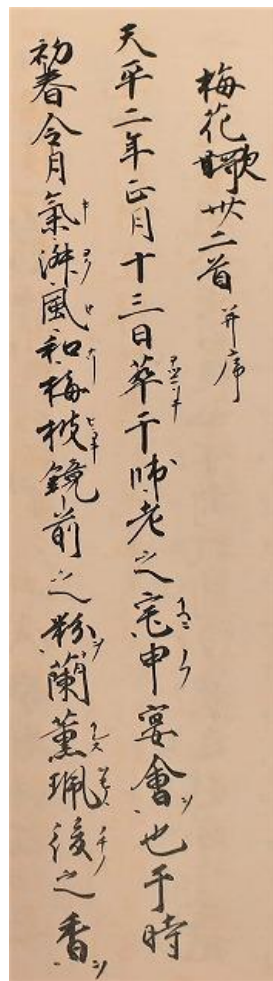 梅花謌卅二首 并序
天平二年正月十三日萃于師老之宅申宴會也于時
初春令月氣淑風和梅披鏡前之粉蘭薫珮後之香